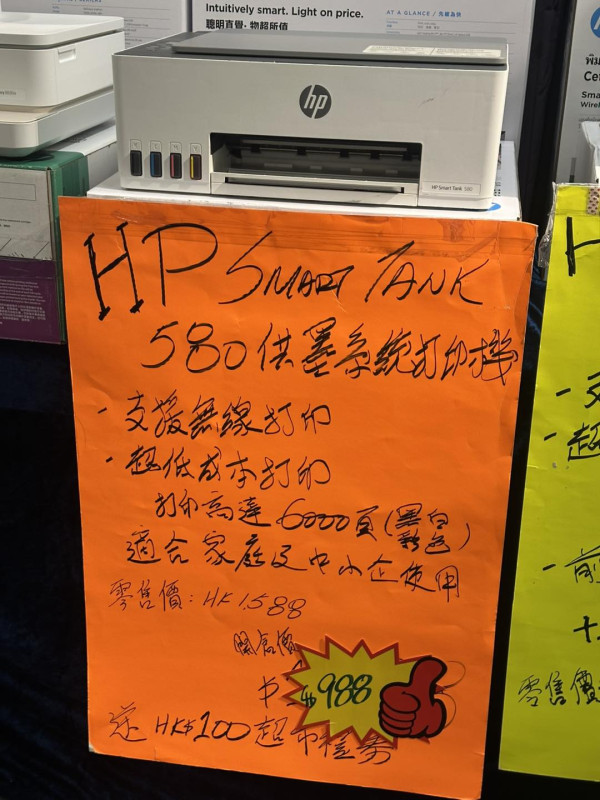 Intuitively smart. Light on price.
聰明直覺·物超所值
AT A GLANCE / 先睹為快
hp
HP Smart Tank 580
HP SMART TANK
580供墨系統打印機
- 支援無線打印
- 超低成本打印
打印高達6000頁(黑白
彩色)
適合家庭及中小企使用
零售價: HK1,588
開倉價
$988
送 HK$100超市禮券
- 支
- 超
- 前
零售價